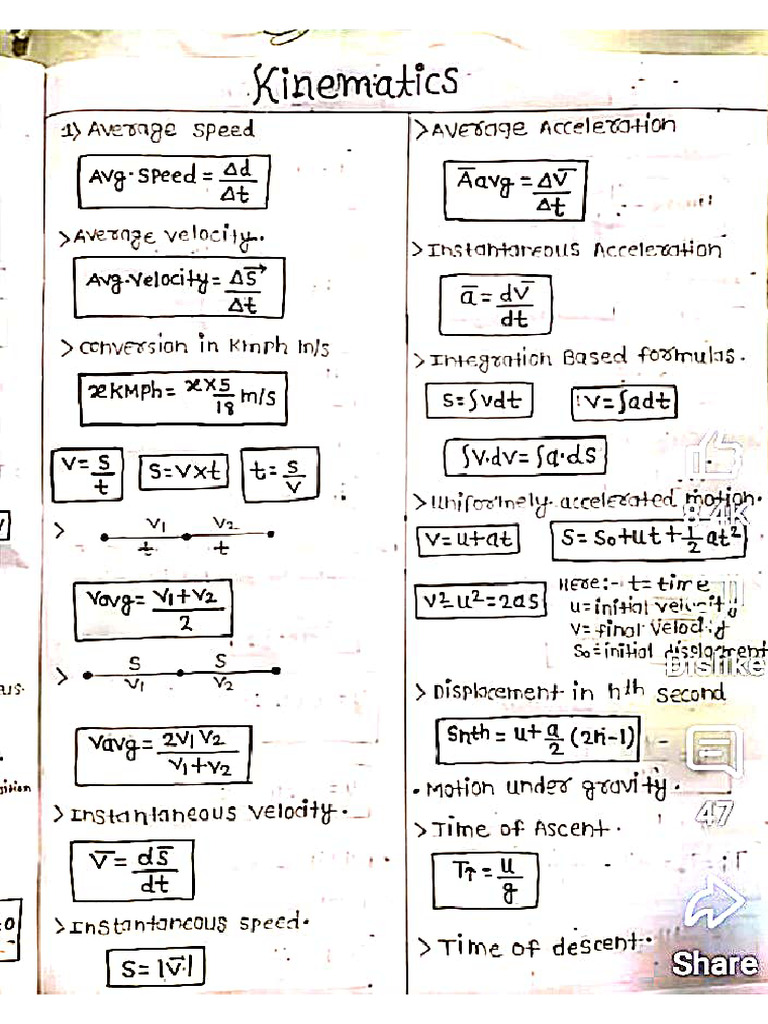 Kinematics
1) Average speed
Avg. speed = Δd/Δt
> Average velocity.
Avg. velocity = ΔS⃗/Δt
> Conversion in Kmph m/s
x KMPh = x×5/18 m/s
V = S/t
S = V×t
t = S/V
>
V₁ V₂
t t
Vavg = V₁+V₂/2
>
S S
V₁ V₂
Vavg = 2V₁V₂/V₁+V₂
> Instantaneous velocity.
V̅ = dS̅/dt
> Instantaneous speed.
S = |V̅|
> Average Acceleration
A̅avg = ΔV̅/Δt
> Instantaneous Acceleration
a̅ = dV̅/dt
> Integration Based formulas.
S = ∫vdt
V = ∫adt
∫V.dv = ∫a.ds
> Uniformely accelerated motion.
V = u+at
S = S₀+ut+1/2 at²
V²-u² = 2as
Here:- t = time
u = initial velocity
V = final velocity
S₀ = initial displacement
> Displacement in nth second
Snth = u+a/2 (2n-1)
• Motion under gravity.
> Time of Ascent.
T↑ = u/g
> Time of descent.
8.4K
Dislike
47
Share